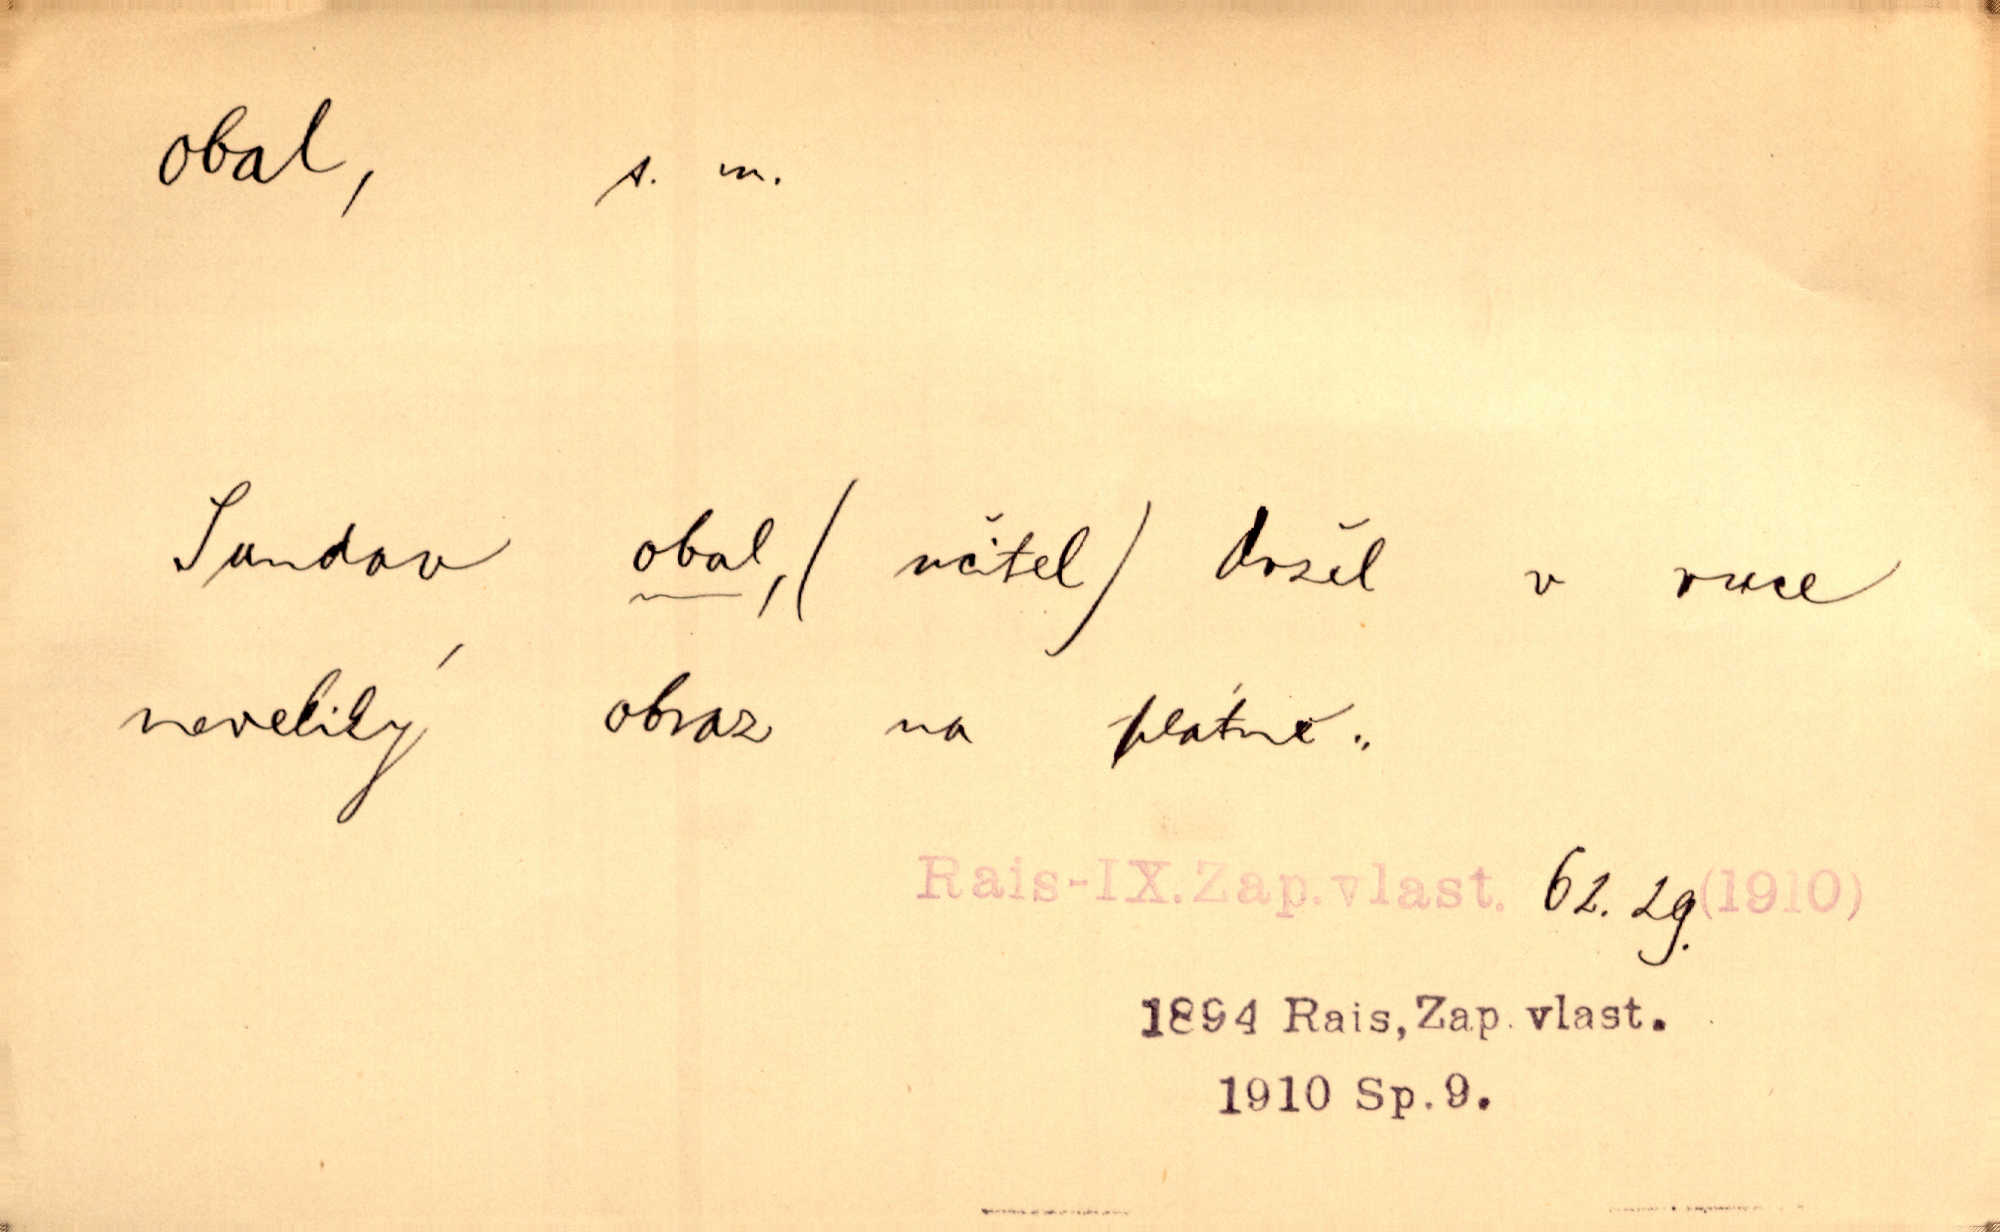 obal, s. m.
Sundav obal, (učitel) držel v ruce
neveliký obraz na plátně.
Rais-IX. Zap. vlast. 62. 29. (1910)
1894 Rais, Zap. vlast.
1910 Sp. 9.